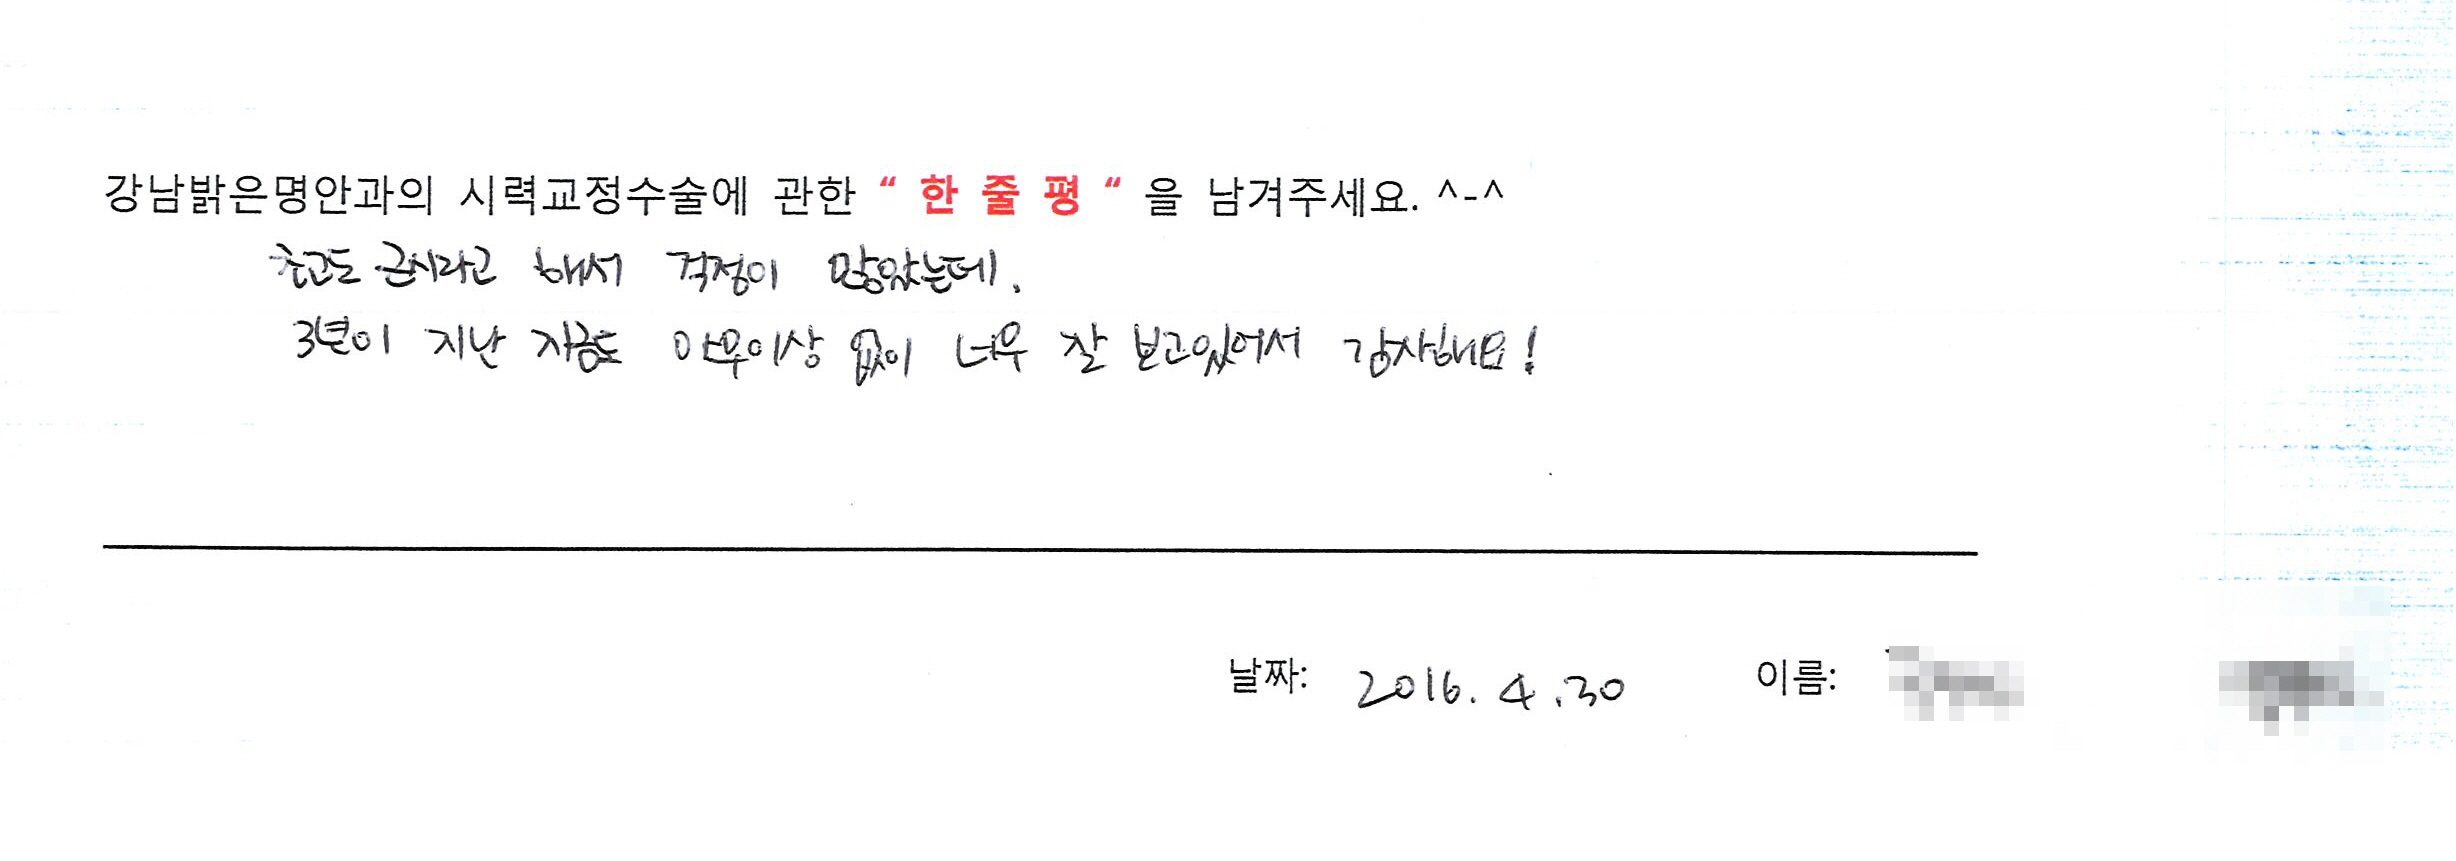 강남밝은명안과의 시력교정수술에 관한 “ 한 줄 평 “ 을 남겨주세요. ^-^
초고도 근시라고 해서 걱정이 많았는데.
3년이 지난 지금도 아무이상 없이 너무 잘 보고있어서 감사해요!
날짜: 2016. 4. 30 이름: